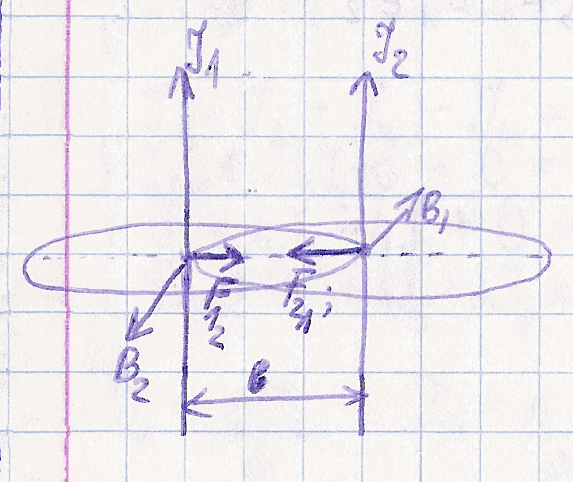 J₁ J₂
B₁
F₁₂ F₂₁;
B₂
в